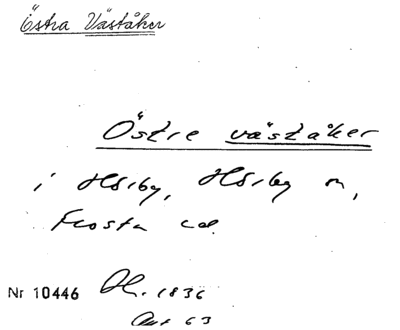 Östra Väståker
Östre väståker
i Hörby, Hörby sn,
Frosta hd.
Nr 10446 Lh. 1836
Akt 63